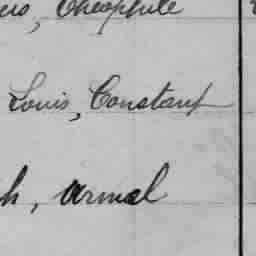 Théophile
Louis, Constant
h, Armel